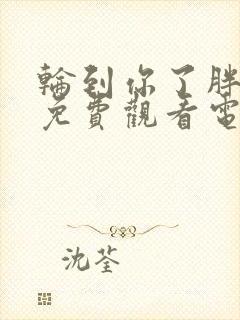 輪到你了胖
免費觀看電
沈荃